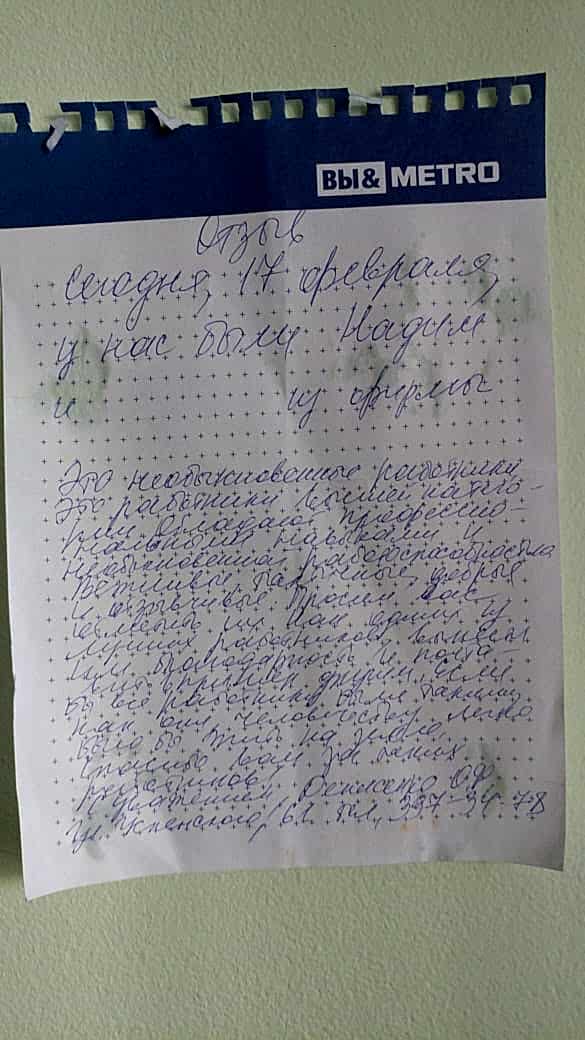 ВЫ& METRO
Отзыв
Сегодня, 17 февраля,
у нас были Надим
и из фирмы
Это необыкновенные работники
Это работники высшей катего-
рии. Обладают профессио-
нальными навыками и
необыкновенной работоспособностью
Вежливые, тактичные, добрые
и отзывчивые. Просим Вас
отметить их как одних из
лучших работников, вынести
им благодарность и поста-
вить в пример другим. Если
бы все работники были такими
как они, человечеству легко
было бы жить на земле.
Спасибо Вам за таких
работников!
С уважением, Денисенко О.Ф.
ул. 61. тел. 337-34-78